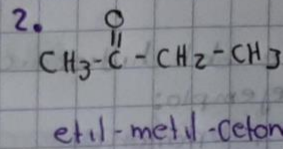 2.
O
||
CH3-C-CH2-CH3
etil-metil-ceton